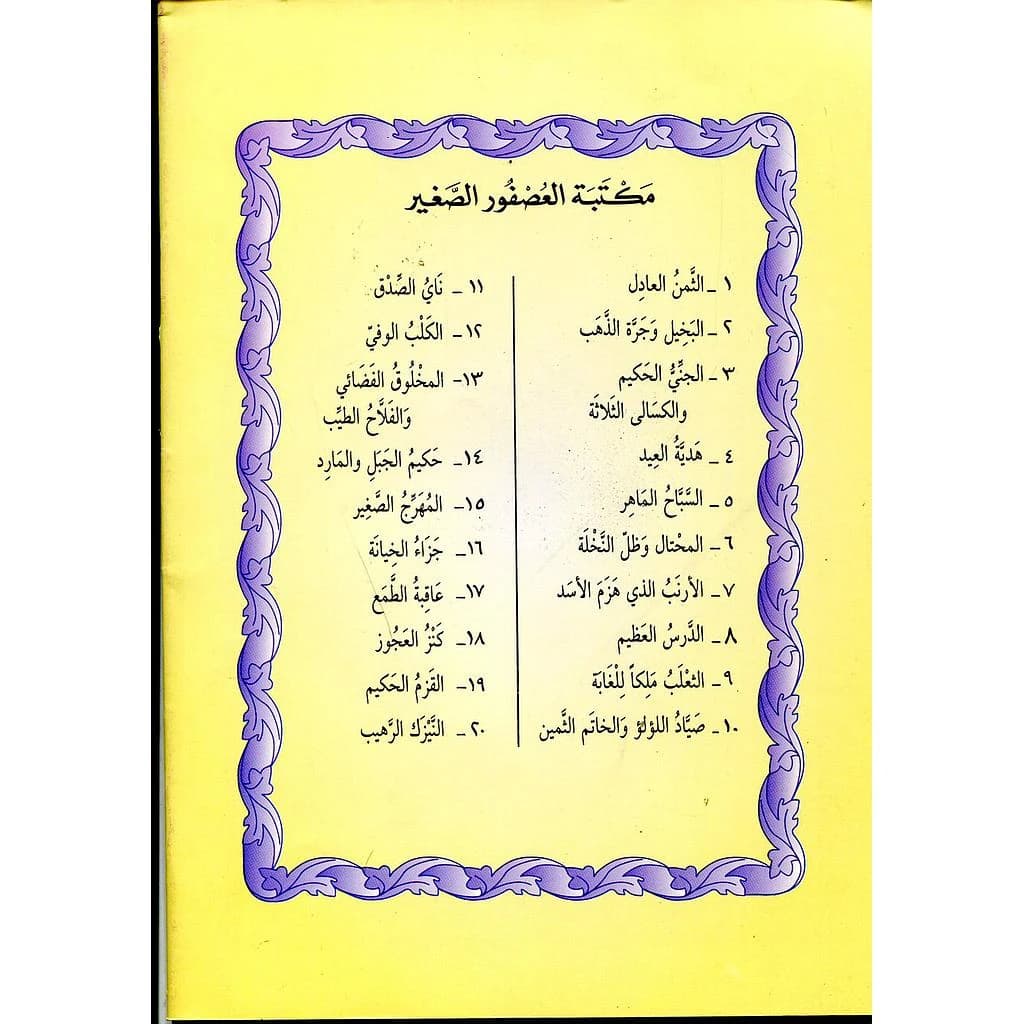 مَكْتَبَة العُصْفُور الصَّغير
١ _ الثَّمنُ العادِل
٢ _ البَخِيل وَجَرَّة الذَّهَب
٣ _ الجِنِّيُّ الحَكيم
والكسَالى الثَلاثَة
٤ _ هَديَّةُ العِيد
٥ _ السَّبَّاحُ المَاهِر
٦ _ المحْتال وَظلّ النَّخْلَة
٧ _ الأرنَبُ الذي هَزَمَ الأسَد
٨ _ الدَّرسُ العَظيم
٩ _ الثعْلَبُ مَلِكاً لِلْغَابَة
١٠ _ صَيَّادُ اللؤلؤ وَالخاتَم الثَّمين
١١ _ نَايُ الصِّدْق
١٢ _ الكَلْبُ الوفيّ
١٣ _ المخْلُوقُ الفَضَائي
وَالفَلَّاحُ الطيِّب
١٤ _ حَكيمُ الجَبَلِ والمَارِد
١٥ _ المُهَرِّجُ الصَّغِير
١٦ _ جَزَاءُ الخِيانَة
١٧ _ عَاقِبَةُ الطَّمَع
١٨ _ كَنْزُ العَجُوز
١٩ _ القَزمُ الحَكيم
٢٠ _ النَّيْزَك الرَّهيب